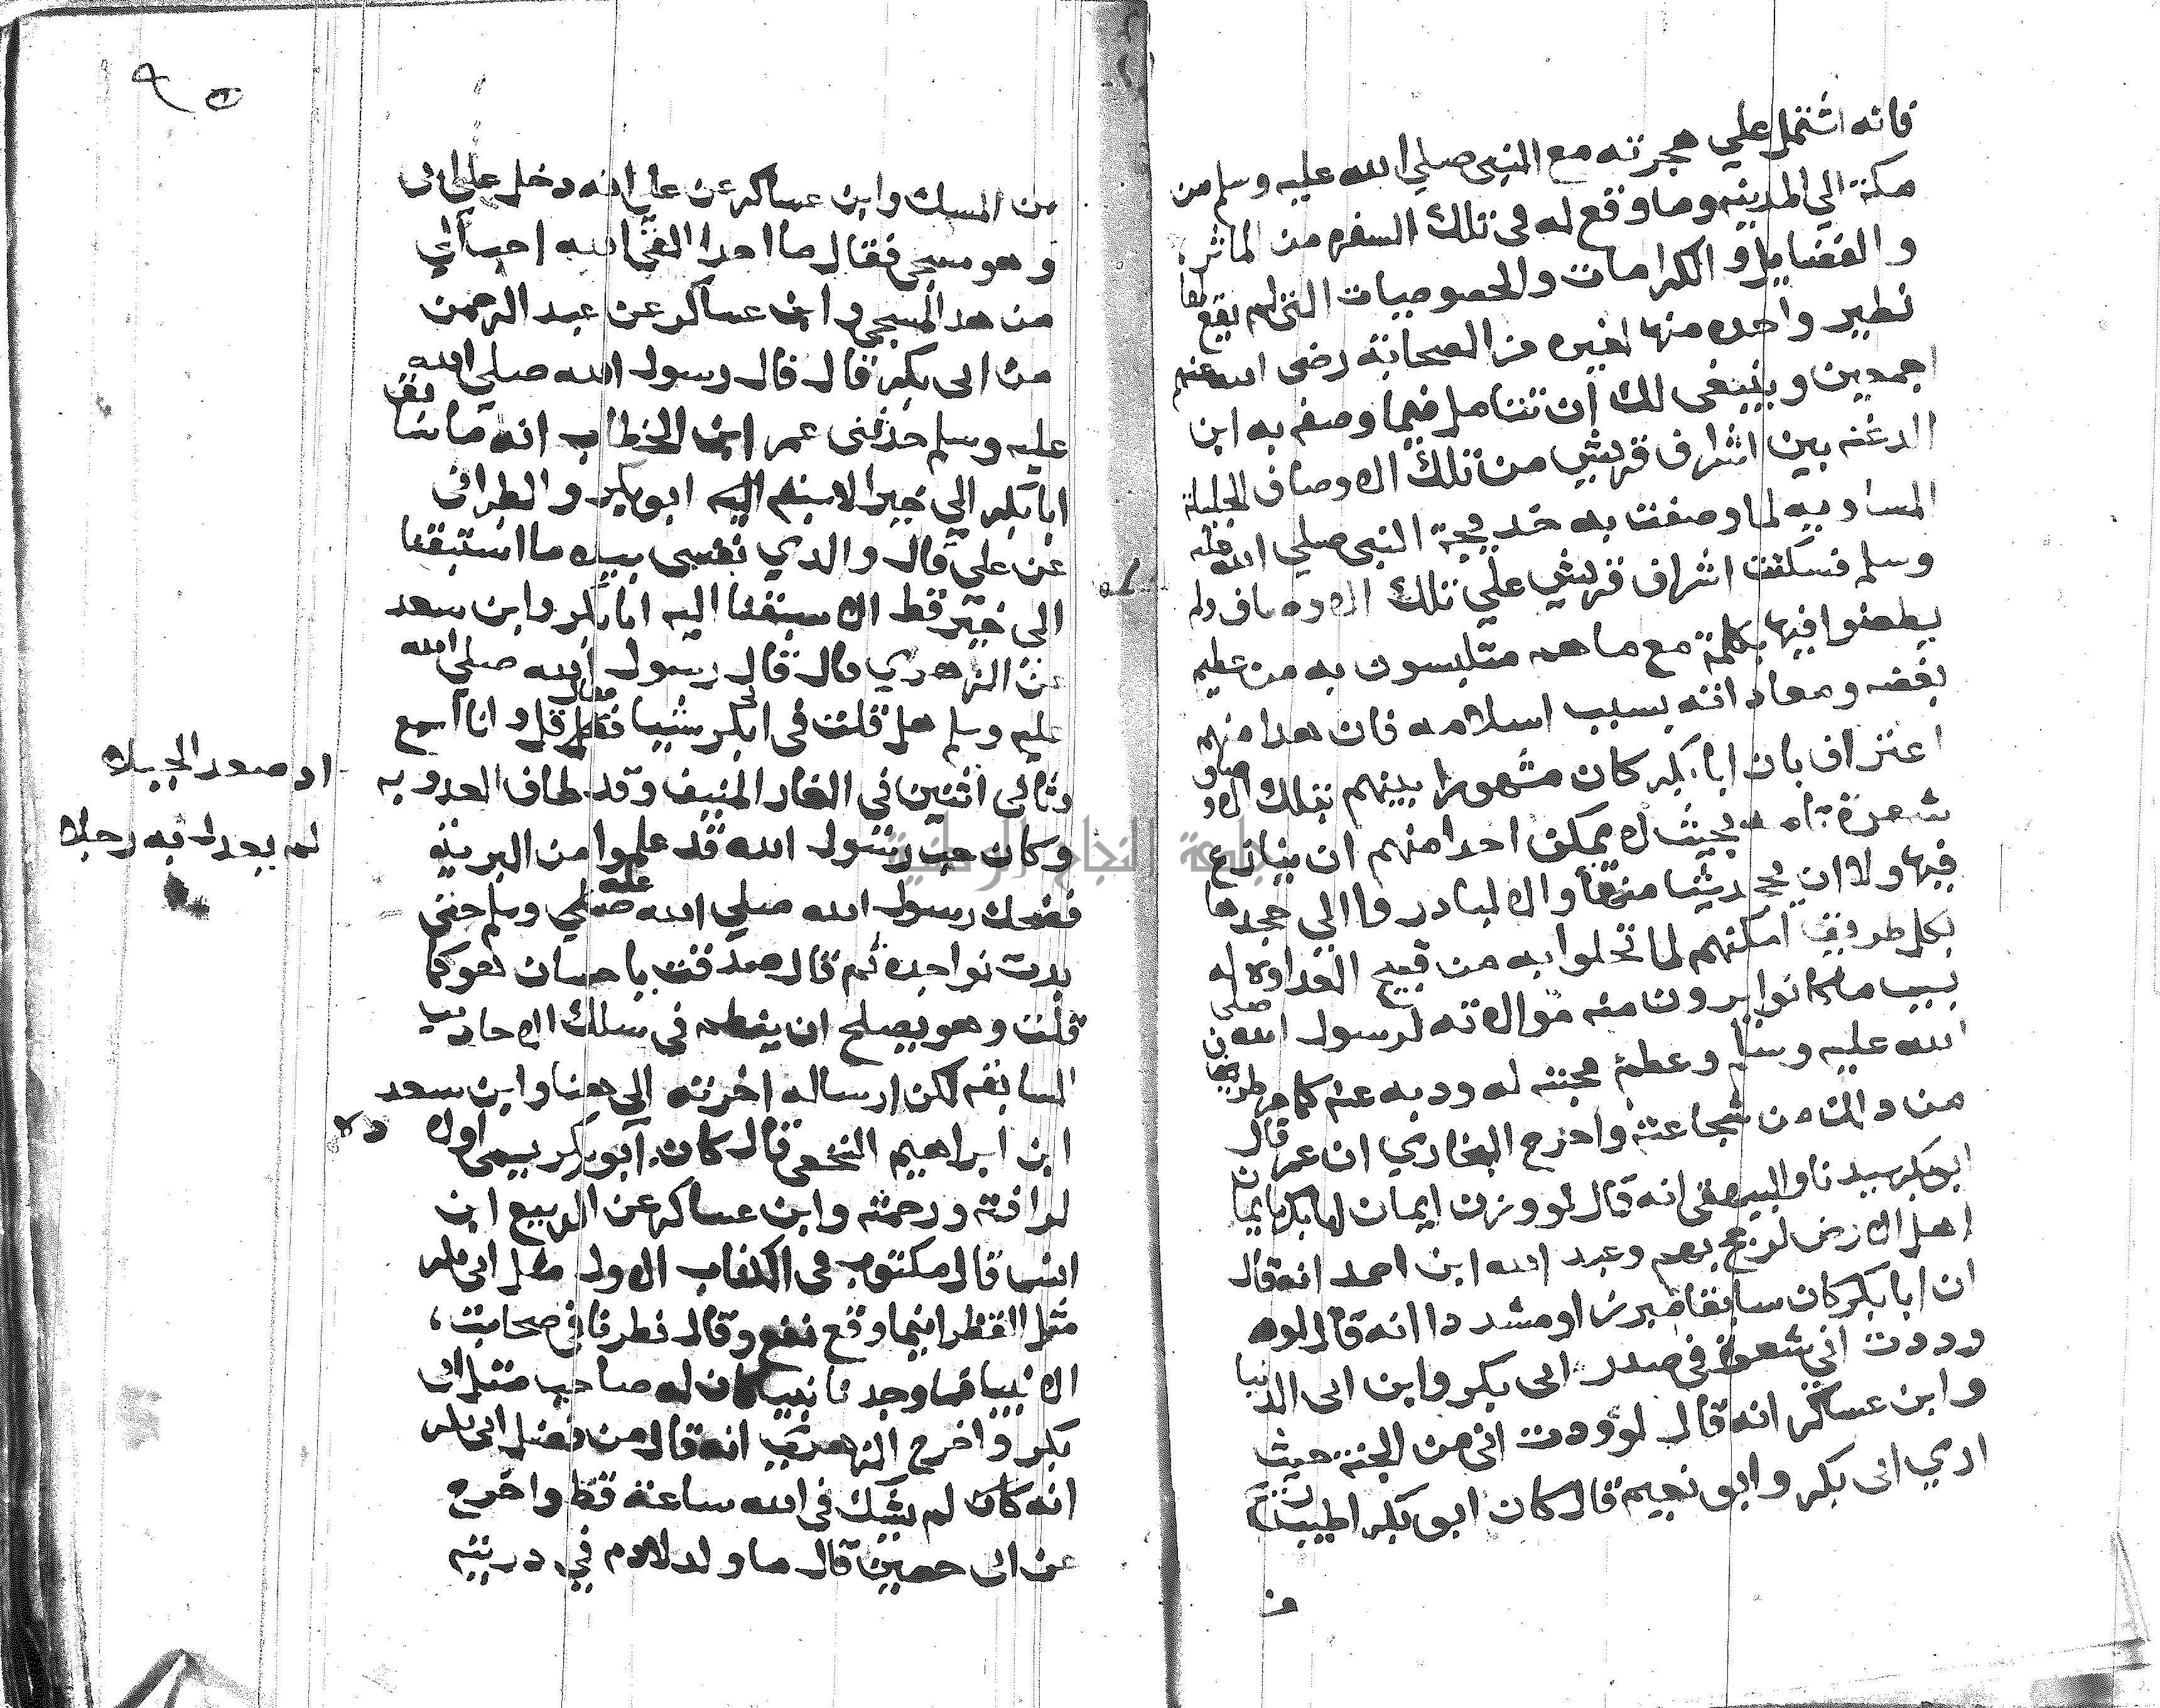 فانه اشتمل علي هجرته مع النبي صلي الله عليه وسلم من
مكة الي المدينه وما وقع له في تلك السفره من الماثر
والفضايل والكرامات والخصوصيات التي لم يقع لها
نظير واحده منها لغيره من الصحابة رضي الله عنهم
اجمعين وينبغي لك ان تتامل فيما وصفه به ابن
الدغنه بين اشراف قريش من تلك الاوصاف الجليلة
المساويه لما وصفت به خديجة النبي صلي الله عليه
وسلم فسكتت اشراف قريش علي تلك الاوصاف ولم
يطعنوا فيها بكلمة مع ما هم متلبسون به من عظيم
بغضه ومعاداته بسبب اسلامه فان هدا منهم
اعتراف بان ابا بكر كان مشهورا بينهم بتلك الاوصاف
شهرة تامه بحيث لا يمكن احدا منهم ان ينازع
فيها ولا ان يجحد شيا منها والا لبادروا الي جحدها
بكل طريق امكنهم لما تحلوا به من قبيح العداوه له
بسبب ما كانوا يرون منه موالاته لرسول الله صلي
الله عليه وسلم وعظم محبته له ودبه عنه كما مر طرف
من دلك من شجاعته واخرج البخاري ان عمر قال
ابو بكر سيدنا والبيهقي انه قال لو وزن ايمان ابا بكر بايمان
اهل الارض لرجح بهم وعبد الله ابن احمد انه قال
ان ابا بكر كان سابقا مبرزا ومشددا انه قال لو
وددت اني شعرة في صدر ابي بكر وابن ابي الدنيا
وابن عساكر انه قال لو وددت اني من الجنة حيث
اري ابي بكر وابو نعيم قال كان ابو بكر اطيب ريح
من
من المسك وابن عساكر عن علي انه دخل علي ابي
وهو مسجي فقال ما احد القي الله احب الي
من هدا المسجي وابن عساكر عن عبد الرحمن
من ابي بكر قال قال رسول الله صلي الله
عليه وسلم حدثني عمر ابن الخطاب انه ما سابق
ابا بكر الي خير الا سبقه اليه ابو بكر والطبراني
عن علي قال والدي نفسي بيده ما استبقنا
الي خير قط الا سبقنا اليه ابا بكر وابن سعد
عن الزهري قال قال رسول الله صلي الله
عليه وسلم هل قلت في ابي بكر شييا فقال قل وانا اسمع
وثاني اثنين في الغار المنيف وقد طاف العدو به
اد صعد الجبلا
وكان حب رسول الله قد علموا من البرية
لم يعدل به رجلا
فضحك رسول الله صلي الله عليه وسلم حتي
بدت نواجده ثم قال صدقت يا حسان هو كما
قلت وهو يصلح ان ينظم في سلك الاحاديث
السابقه لكن ارساله اخرته الي هنا وابن سعد
ابن ابراهيم النخعي قال كان ابو بكر يسمي اواه
لرافته ورحمته وابن عساكر عن الربيع ابن
انس قال مكتوب في الكتاب الاول مثل ابي بكر
مثل القطر اينما وقع نفع وقال نظرنا في صحابة
الانبيا فما وجدنا نبيا كان له صاحب مثل ابي
بكر واخرج الزهري انه قال من فضل ابي بكر
انه كان لم يشك في الله ساعة قط واخرج
عن ابي حصين قال ما ولد لادم في دريته